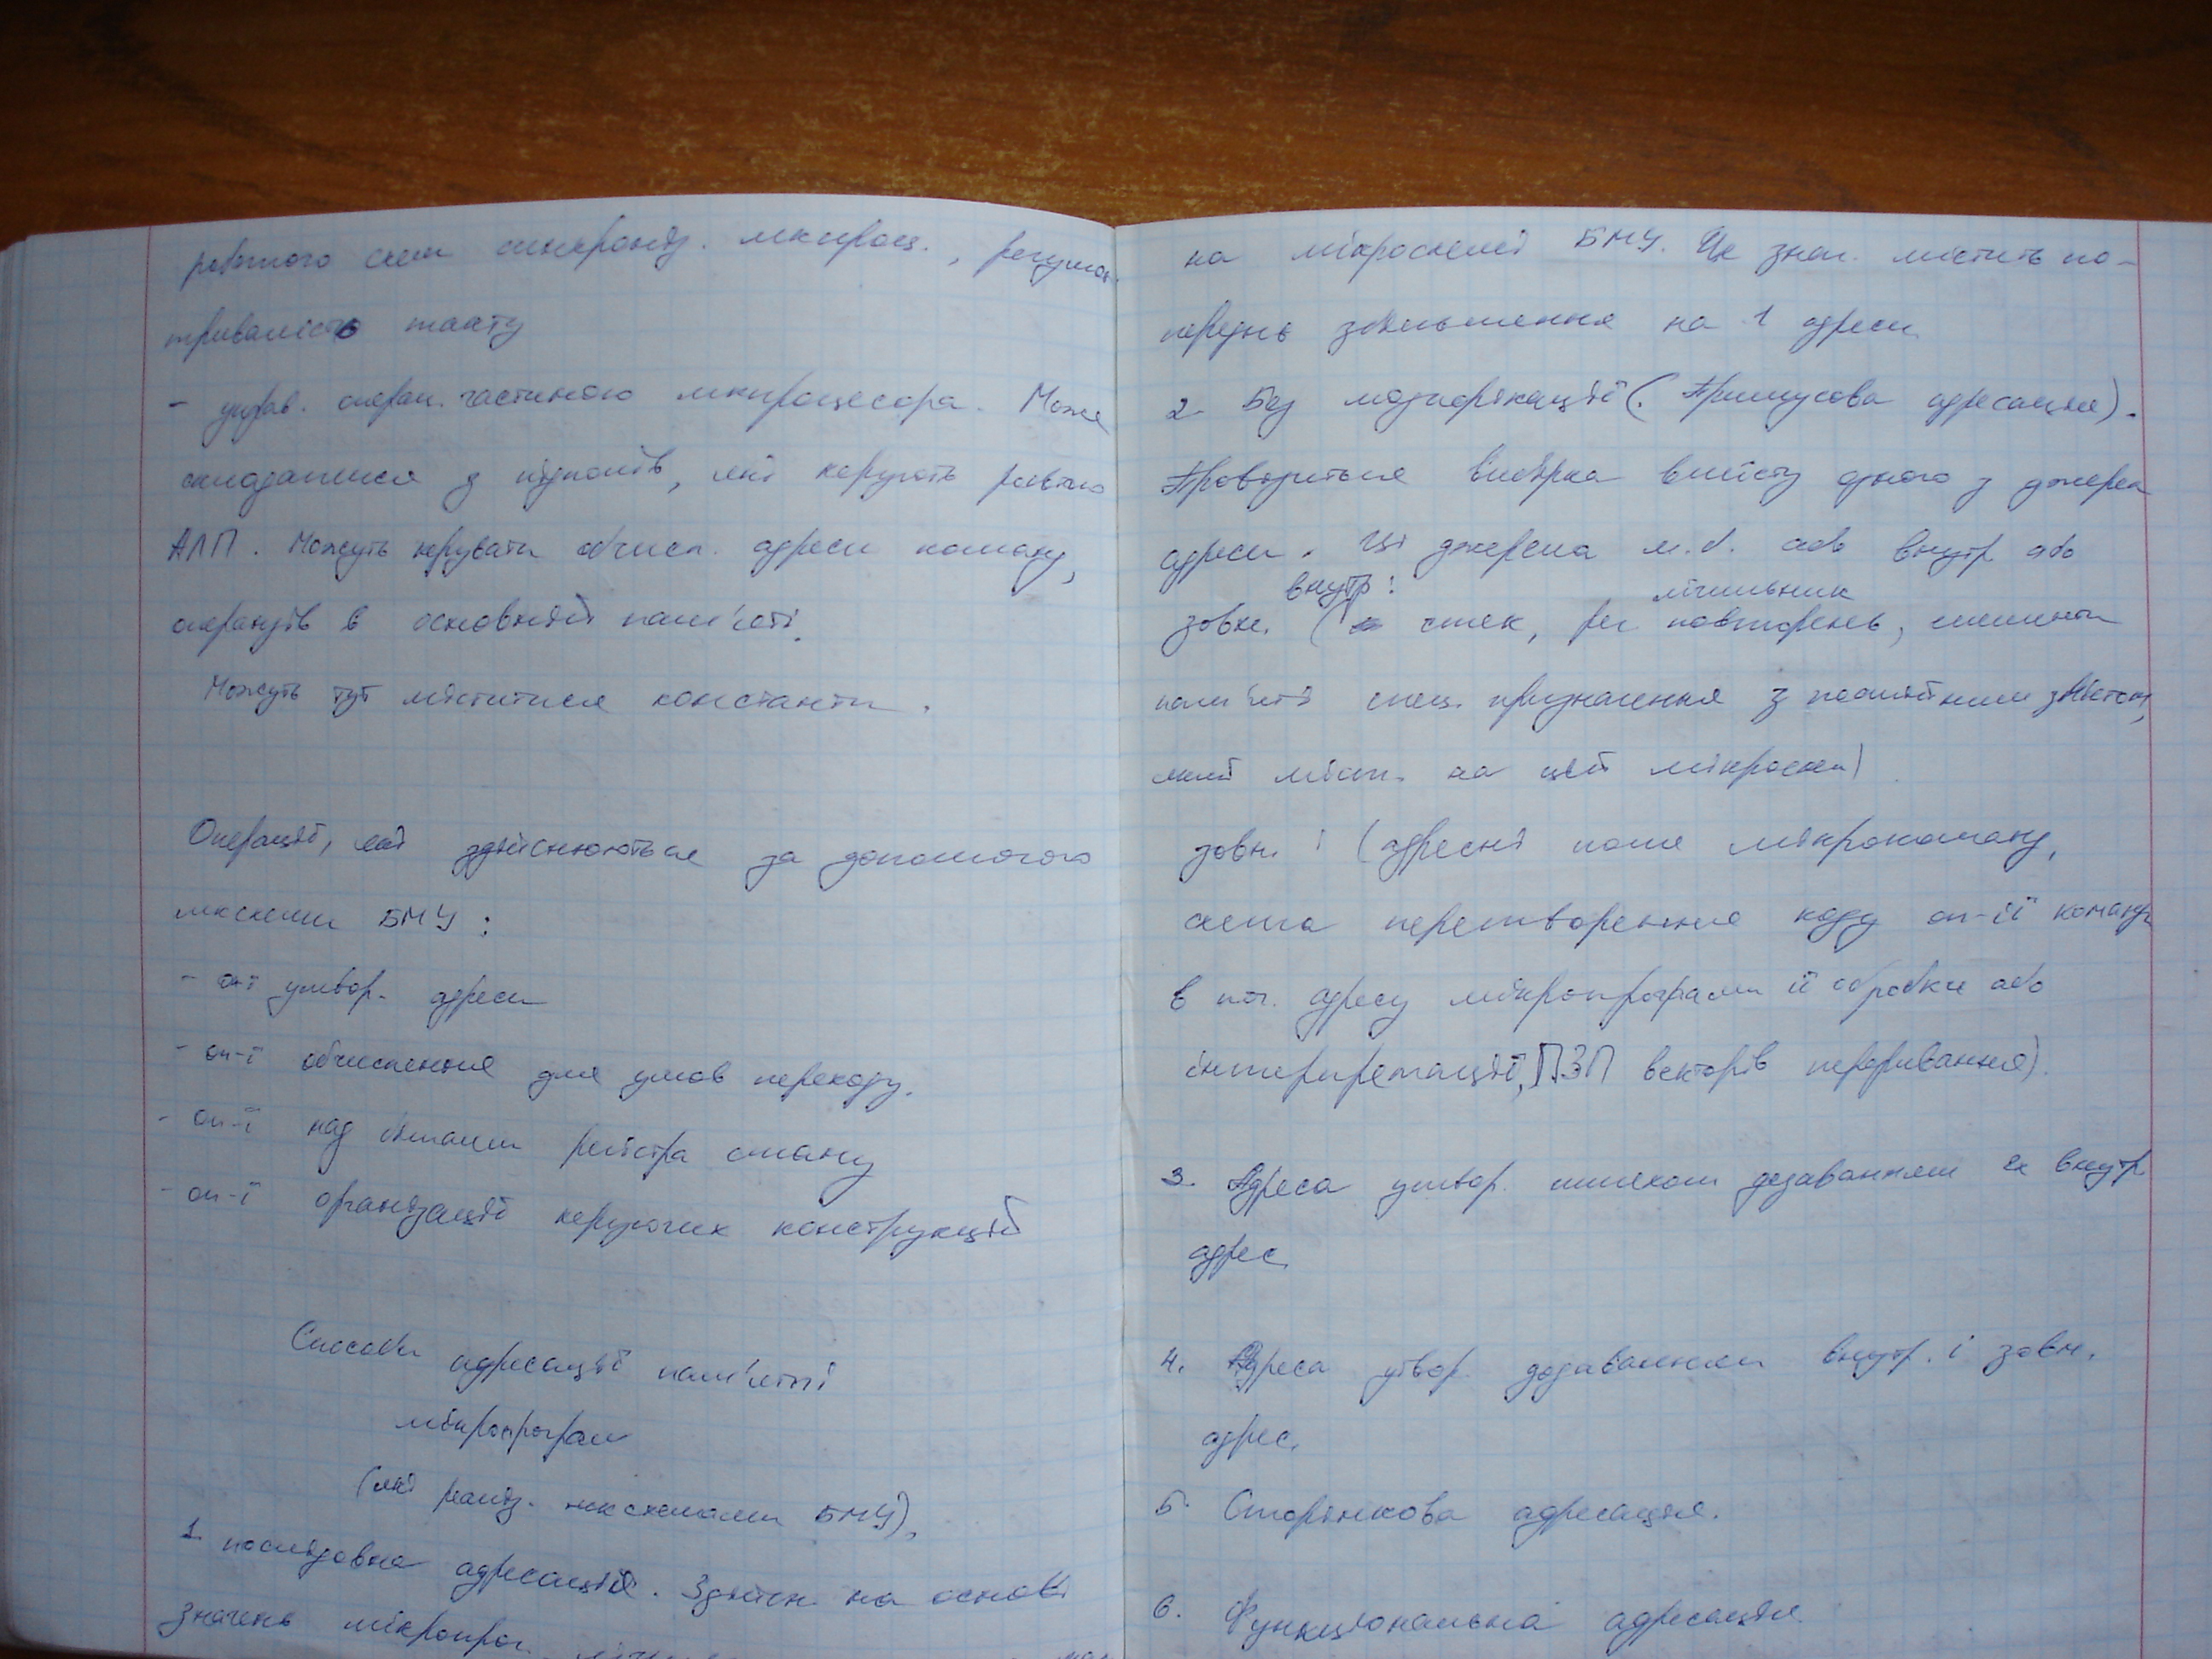 роботою схем синхроніз. мкпроц., регулює
тривалість такту
- управ. операц. частиною мкпроцесора. Може
складатися з підполів, які керують роботою
АЛП. Можуть керувати обчисл. адреси команд,
операндів в основній пам'яті.
Можуть тут міститися константи.
Операції, які здійснюються за допомогою
мксхеми БМУ:
- оп-ї утвор. адреси
- оп-ї обчислення для умов переходу.
- оп-ї над бітами регістра стану
- оп-ї організації керуючих конструкцій
Способи адресації пам'яті
мікропрограм
(які реаліз. мксхемами БМУ),
1. послідовна адресація. Здійсн. на основі
значень мікропрог.
на мікросхемі БМУ. Це знач. містить по-
переднє збільшення на 1 адреси
2. Без модифікації (Примусова адресація).
Проводиться вибірка вмісту одного з джерел
адреси. Ці джерела м.б. або внутр або
внутр: лічильник
зовн. (стек, рег повторень,
пам'яті спец. призначення з постійним змістом,
який міст. на цій мікросхемі)
зовн: (адресні поле мікрокоманд,
схема перетворення коду оп-ії команди
в поч. адресу мікропрограми її обробки або
інтерпретації, ПЗП векторів переривання).
3. Адреса утвор. шляхом додаванням внутр
адрес.
4. Адреса утвор. додаванням внутр. і зовн.
адрес.
5. Сторінкова адресація.
6. Функціональна адресація